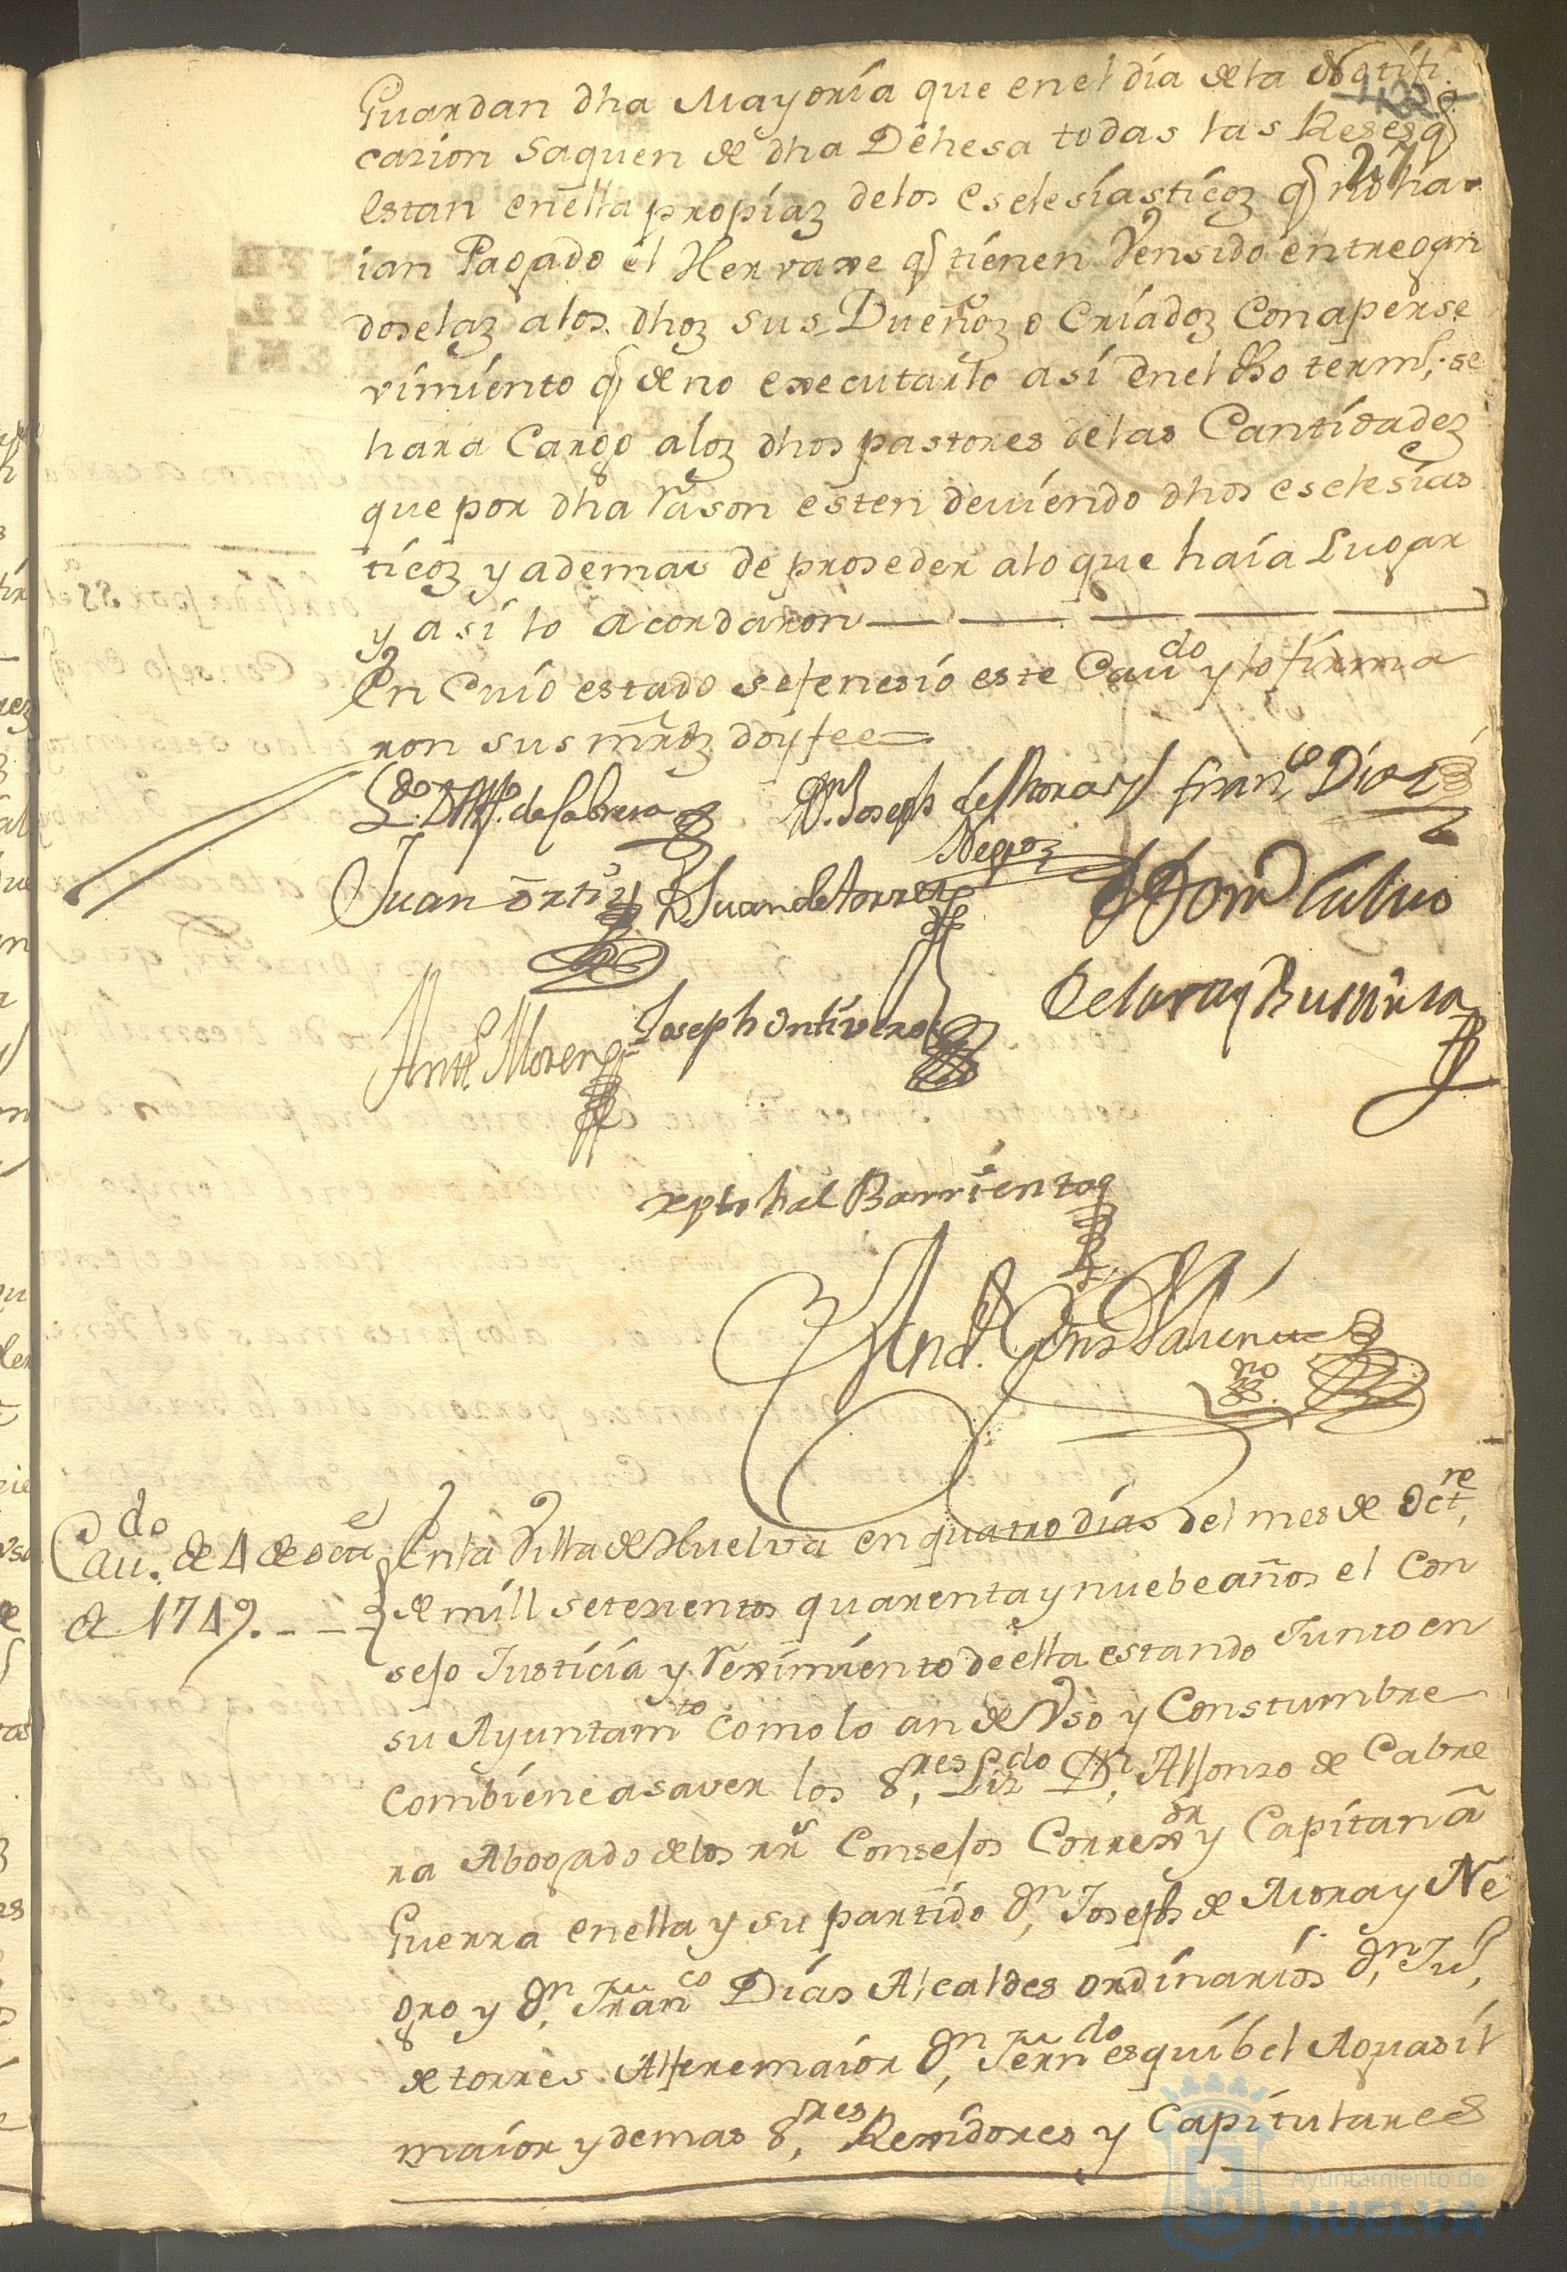 Guardan dha Mayoria que en el dia de la Notifi
cazion saquen de dha Dehesa todas las Reses q
27
estan en ella propiaz de los eselesiasticoz q no ha
ian Pagado el Hervaxe q tienen Vensido entregan
doselaz a los dhoz sus Dueñoz o Criadoz Con aperse
vimiento q de no executarlo asi en el dho termo se
hara Cargo a loz dhos pastores de las Cantidadez
que por dha rason esten deviendo dhos eselesias
ticoz y ademas de proseder a lo que haia Lugar
y asi lo acordaron
En Cuio estado se fenesio este Cavdo y lo firma
ron sus mrdz doy fee
Ldo Dn Alfo de Cabrera Dn Joseph de Mora y Franco Diaz
Negro
Juan ortiz Dn Juan de torres D Domo Calvo
de la ray Busturia
Anto Moreno Joseph Ontivero
xptobal Barrientos
Cavdo de 4 de octe
de 1749
En la Villa de Huelva en quatro dias del mes de Octre
de mill setezientos quarenta y nuebe años el Con
sejo Justicia y Reximiento de ella estando Junto en
su Ayuntamto como lo an de Vso y Constumbre
combiene a saver los Sres Lizdo Dn Alfonzo de Cabre
ra Abogado de los rrs Consejos Correxor y Capitan a
Guerra en ella y su partido Dn Joseph de Mora y Ne
gro y Dn Franco Dias Alcaldes ordinarios Dn Jul
de torres Alferemaior Dn Ferndo esquibel Aguasil
maior y demas Sres Rexidores y Capitulares
Ayuntamiento de
HUELVA